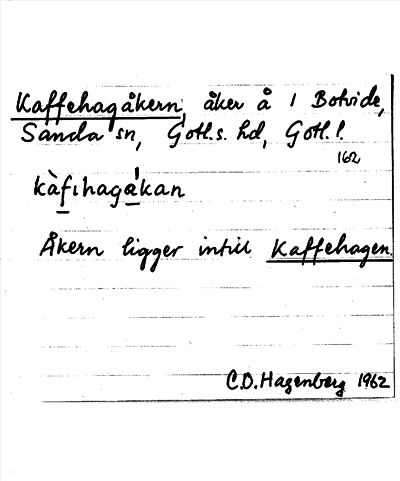 Kaffehagåkern, åker å 1 Botvide,
Sanda sn, Gotl.s. hd, Gotl. l.
162
kàfıhagàkan
Åkern ligger intill Kaffehagen
C.D. Hagenberg 1962